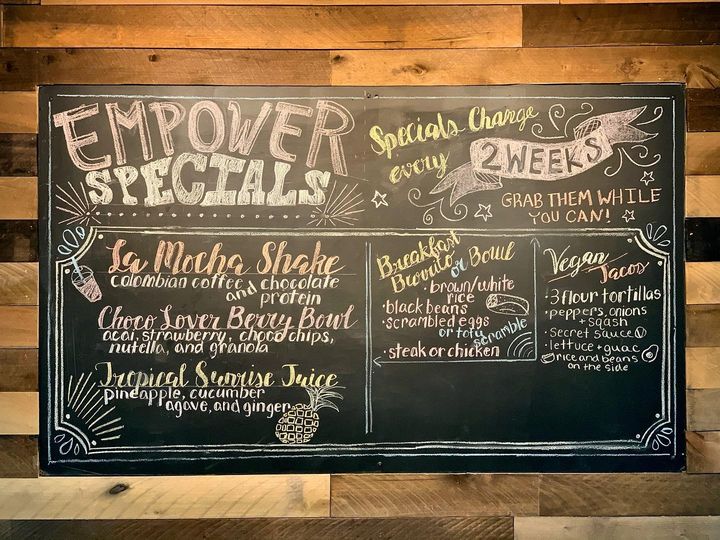 EMPOWER
SPECIALS
Specials Change
every
2 WEEKS
GRAB THEM WHILE
YOU CAN!
La Mocha Shake
colombian coffee chocolate
and protein
Choco Lover Berry Bowl
acai, strawberry, choco chips,
nutella, and granola
Tropical Sunrise Juice
pineapple, cucumber
agave, and ginger
Breakfast
Burrito or Bowl
• brown/white
rice
• black beans
• scrambled eggs
or tofu
scramble
• steak or chicken
Vegan
Tacos
• 3 flour tortillas
• peppers, onions
+ sqash
• secret sauce V
• lettuce + guac
• rice and beans
on the side